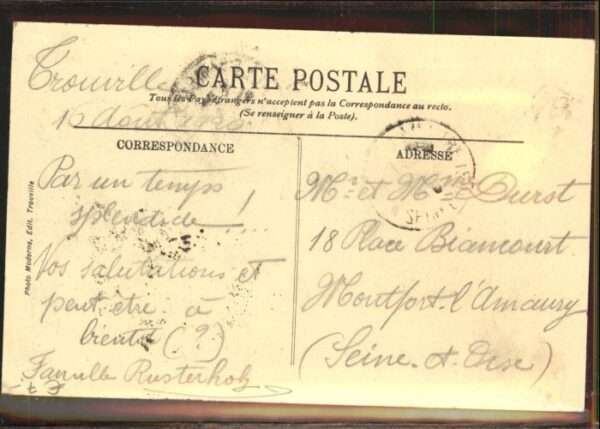 Trouville
CARTE POSTALE
Tous les Pays étrangers n'acceptent pas la Correspondance au recto.
(Se renseigner à la Poste).
16 Août
CORRESPONDANCE
ADRESSE
Par un temps
splendide ! ...
Nos salutations et
peut être à
bientôt (?)
Famille Rusterholz
Mr. et Mme Durst
18 Place Biancourt
Montfort-l'Amaury
(Seine-et-Oise)
Photo Moderne, Edit. Trouville